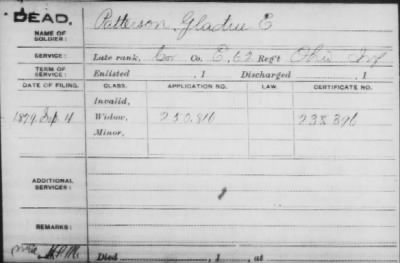 DEAD.
NAME OF SOLDIER: Patterson, E
SERVICE: Late rank, Co. E, 62 Reg't Ohio Inf
TERM OF SERVICE: Enlisted , 1 Discharged , 1
DATE OF FILING. CLASS. APPLICATION NO. LAW. CERTIFICATE NO.
Invalid,
1879 Sep 4 Widow, 250.816 238 396
Minor,
ADDITIONAL SERVICES:
REMARKS:
Died , 1 , at